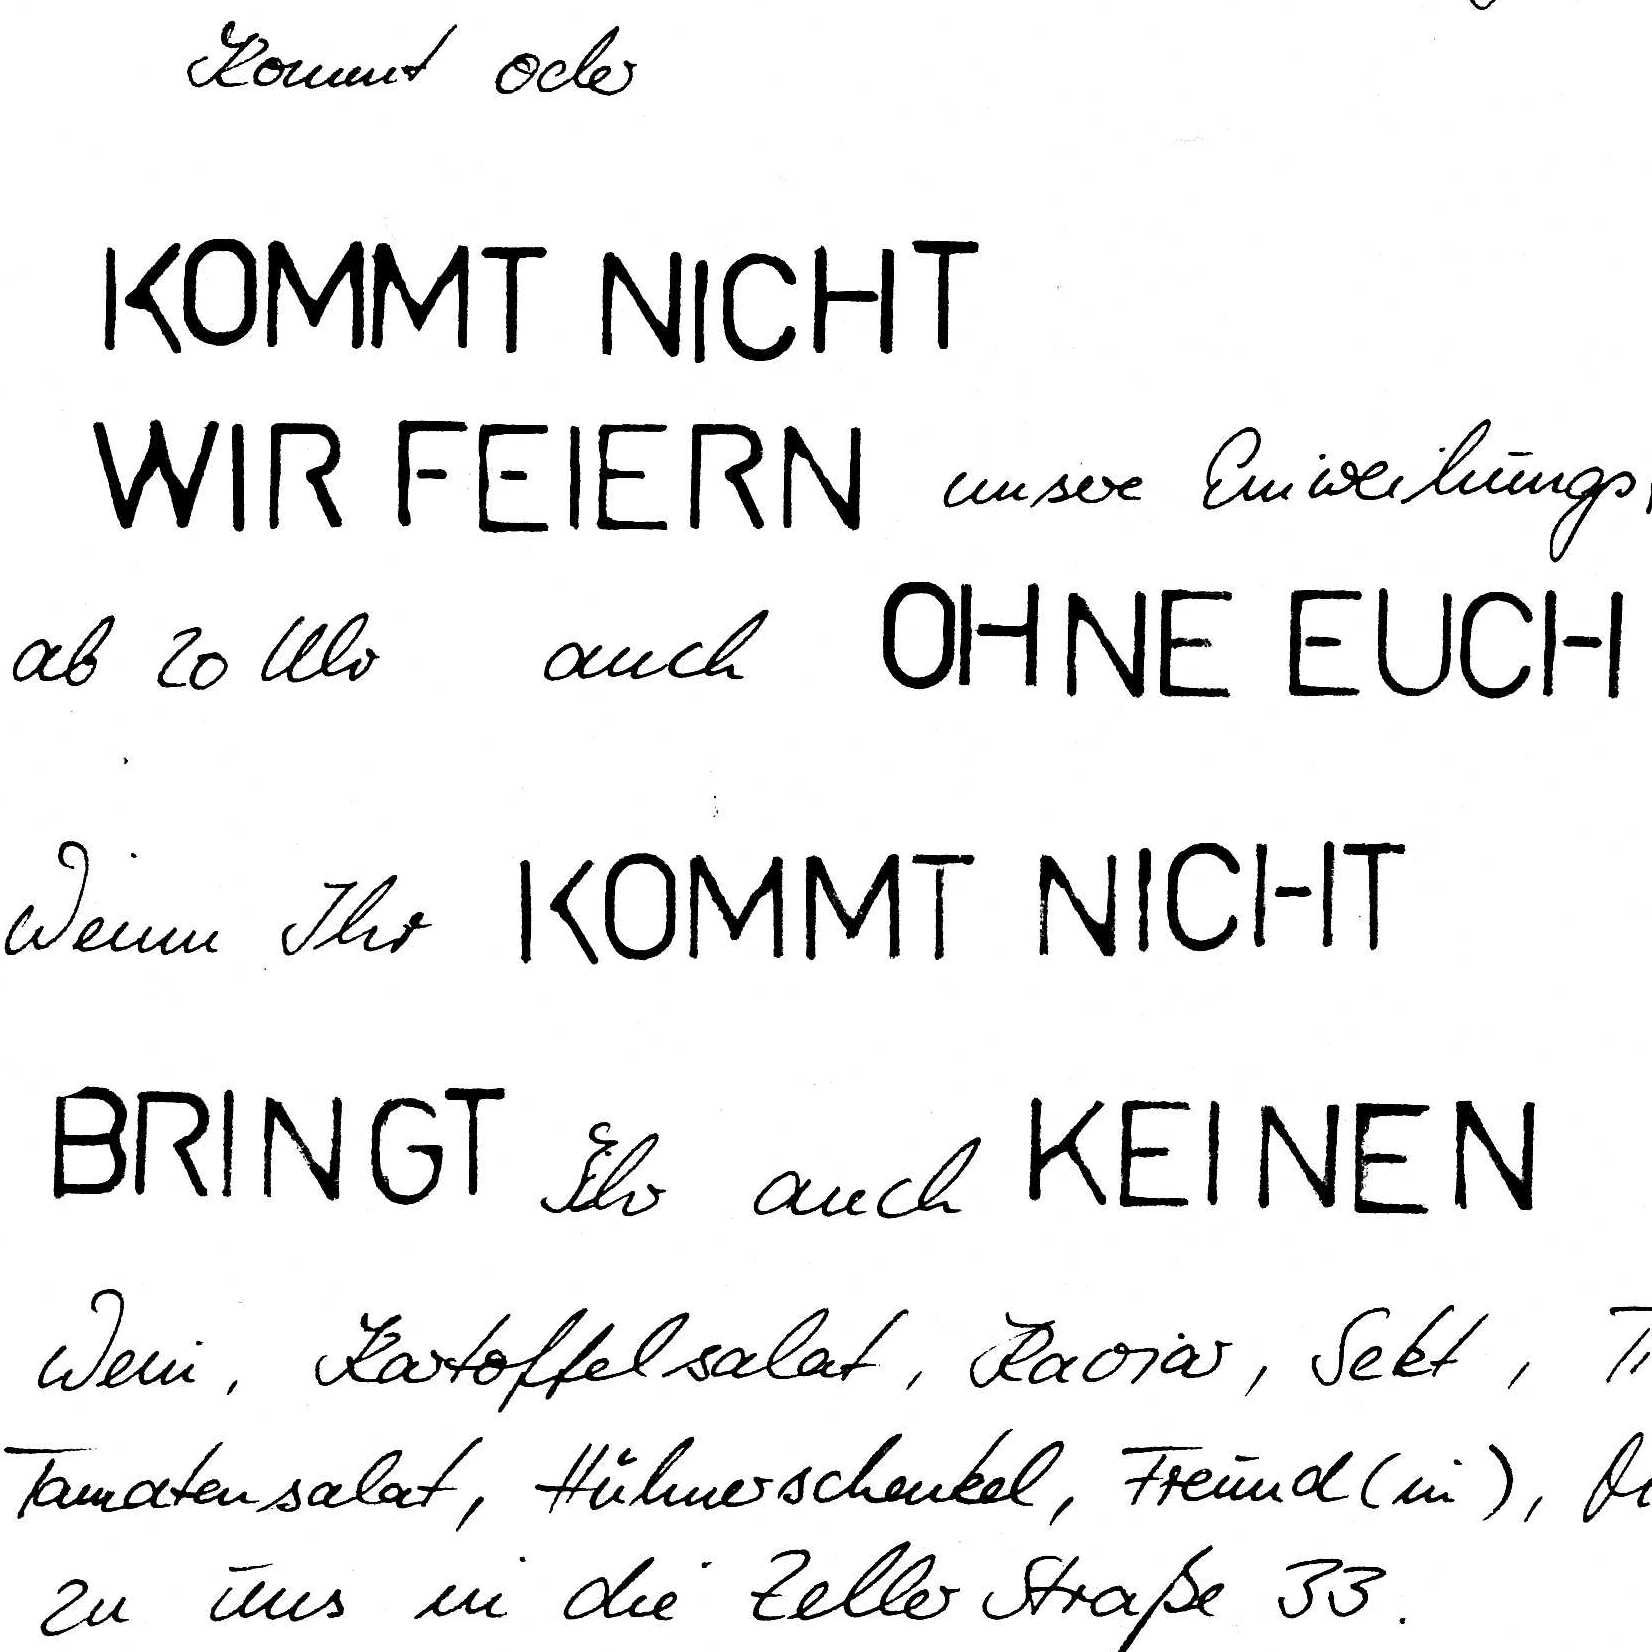 Kommt oder
KOMMT NICHT
WIR FEIERN unsere Einweihungs
ab 20 Uhr auch OHNE EUCH
Wenn Ihr KOMMT NICHT
BRINGT Ihr auch KEINEN
Wein, Kartoffelsalat, Kaviar, Sekt,
Tomatensalat, Hühnerschenkel, Freund(in),
zu uns in die Zeller Straße 33.